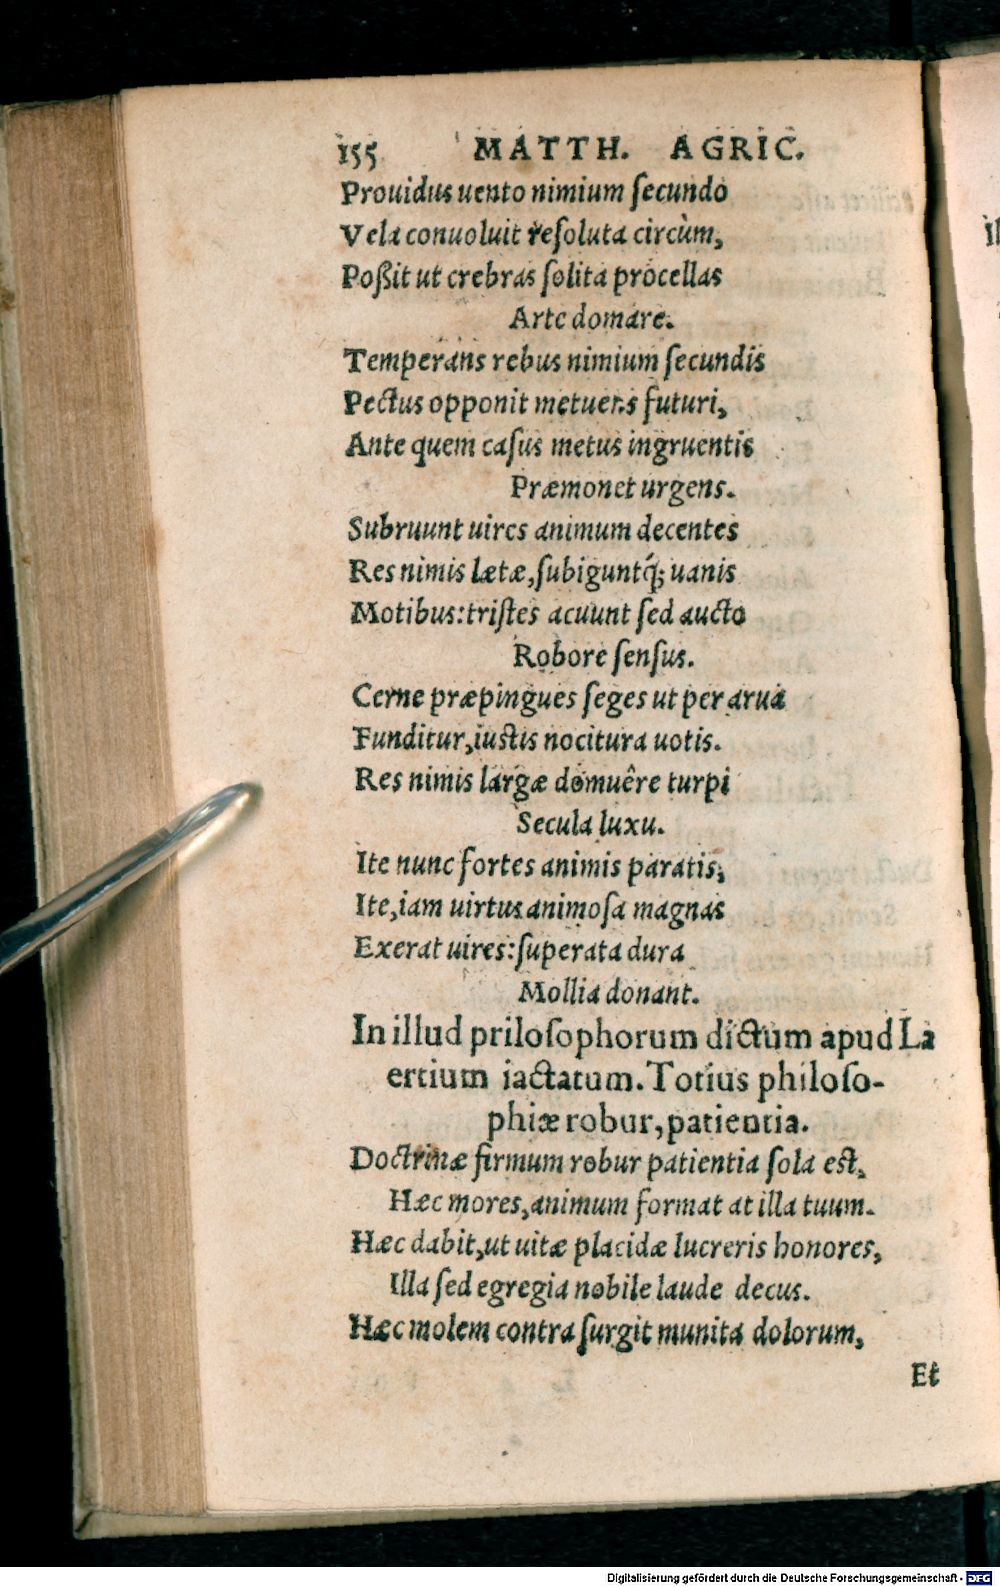 155 MATTH. AGRIC.
Prouidus uento nimium ſecundo
Vela conuoluit reſoluta circùm,
Poßit ut crebras ſolita procellas
Arte domare.
Temperans rebus nimium ſecundis
Pectus opponit metuens futuri,
Ante quem caſus metus ingruentis
Præmonet urgens.
Subruunt uires animum decentes
Res nimis lætæ, ſubiguntq́; uanis
Motibus: triſtes acuunt ſed aucto
Robore ſenſus.
Cerne præpingues ſeges ut per arua
Funditur, iuſtis nocitura uotis.
Res nimis largæ domuêre turpi
Secula luxu.
Ite nunc fortes animis paratis,
Ite, iam uirtus animoſa magnas
Exerat uires: ſuperata dura
Mollia donant.
In illud priloſophorum dictum apud La
ertium iactatum. Totius philoſo-
phiæ robur, patientia.
Doctrinæ firmum robur patientia ſola eſt,
Hæc mores, animum format at illa tuum.
Hæc dabit, ut uitæ placidæ lucreris honores,
Illa ſed egregia nobile laude decus.
Hæc molem contra ſurgit munita dolorum,
Et
Digitalisierung gefördert durch die Deutsche Forschungsgemeinschaft - DFG